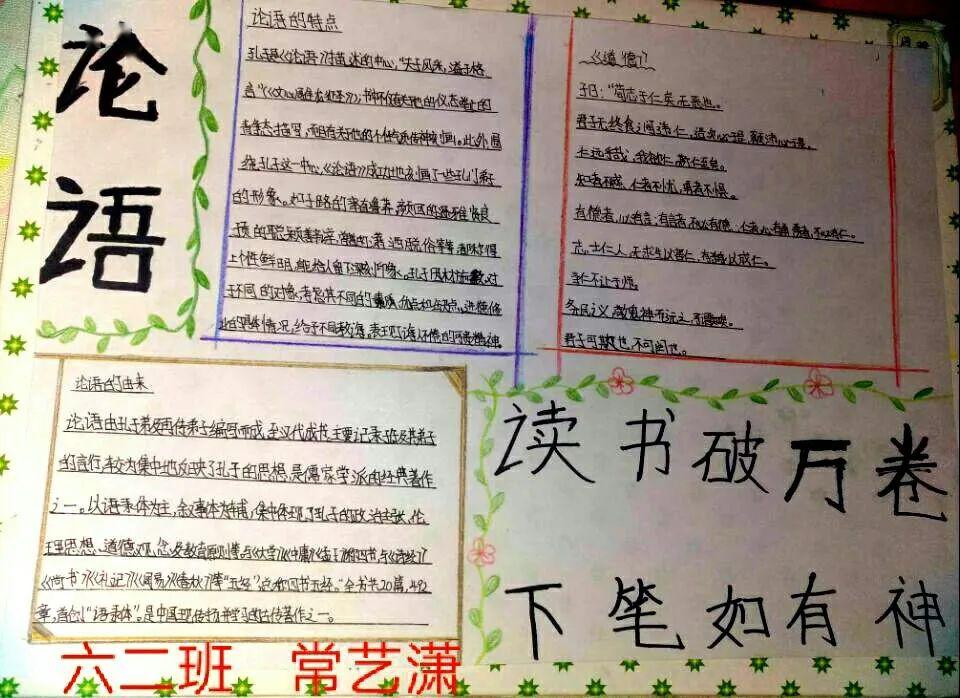 论
语
论语的特点
孔子是《论语》描述的中心,“夫子风采,溢于格
言”《《文心雕龙 征圣》);书中不仅有关于他的仪态举止的
静态描写,而且有关于他的个性气质传神刻画。此外围
绕孔子这一中心,《论语》成功地刻画了一些孔门弟子
的形象。如子路的率直鲁莽,颜回的温雅贤良
子贡的聪颖善辩,曾皙的潇洒脱俗等等,
个性鲜明,能给人留下深刻印象。孔子因材施教,对
于不同的对象,考虑其不同的素质,优点和缺点、进德修
业的具体情况,给予不同教诲。表现了诲人不倦的可贵精神
《道德》
子曰:“苟志于仁矣,无恶也。
君子无终食之间违仁,造次必于是,颠沛必于是。
仁远乎哉,我欲仁,斯仁至矣。
知者不惑,仁者不忧,勇者不惧。
有德者,必有言,有言者不必有德,仁者必有勇,勇者,不必有仁。
志士仁人,无求生以害仁,有杀身以成仁。
务民之义,敬鬼神而远之,
君子可欺也,不可罔也。
论语的由来
论语由孔子弟及再传弟子编写而成,至汉代成书.主要记录孔子及其弟子
的言行,较为集中地反映了孔子的思想,是儒家学派的经典著作
之一。以语录体为主,叙事体为辅,集中体现了孔子的政治主张、伦
理思想、道德观念及教育原则等。与《大学》《中庸》《孟子》称四书,与《诗经》
《尚书》《礼记》《周易》《春秋》等“五经”,总称四书五经。全书共20篇,492
章,首创“语录体”。是中国
读书破万卷
下笔如有神
六二班 常艺潇